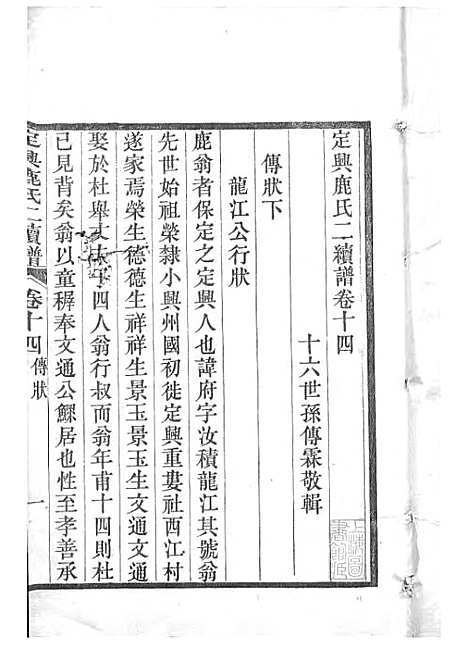 定興鹿氏二續譜卷十四
十六世孫傳霖敬輯
傳狀下
龍江公行狀
鹿翁者保定之定興人也諱府字汝積龍江其號翁
先世始祖榮隸小興州國初徙定興重婁社西江村
遂家焉榮生德德生祥祥生景玉景玉生文通文通
娶於杜舉丈夫子四人翁行叔而翁年甫十四則杜
已見背矣翁以童穉奉文通公鰥居也性至孝善承
定興鹿氏二續譜 卷十四 傳狀 一
上海圖書館藏